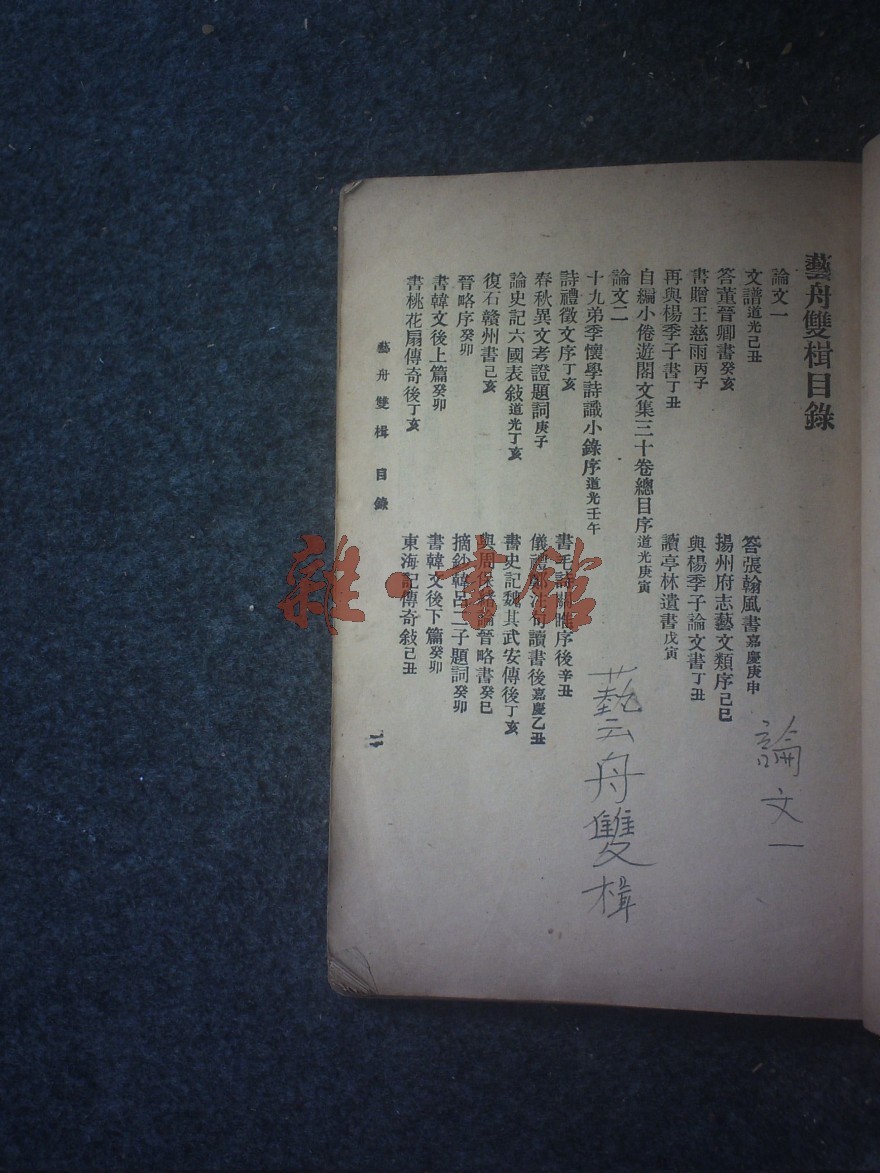 藝舟雙楫目錄
論文一
文譜道光己丑
答張翰風書嘉慶庚申
答董晉卿書癸亥
揚州府志藝文類序己巳
書贈王慈雨丙子
與楊季子論文書丁丑
再與楊季子書丁丑
讀亭林遺書戊寅
自編小倦遊閣文集三十卷總目序道光庚寅
論文二
十九弟季懷學詩識小錄序道光壬午
詩禮徵文序丁亥
書毛詩關雎序後辛丑
春秋異文考證題詞庚子
儀禮鄭注句讀書後嘉慶乙丑
論史記六國表敍道光丁亥
書史記魏其武安傳後丁亥
復石贛州書己亥
與周保緒論晉略書癸巳
晉略序癸卯
摘鈔韓呂二子題詞癸卯
書韓文後上篇癸卯
書韓文後下篇癸卯
書桃花扇傳奇後丁亥
東海記傳奇敍己丑
藝舟雙楫 目錄
一
論文一
藝舟雙楫
雜·書館